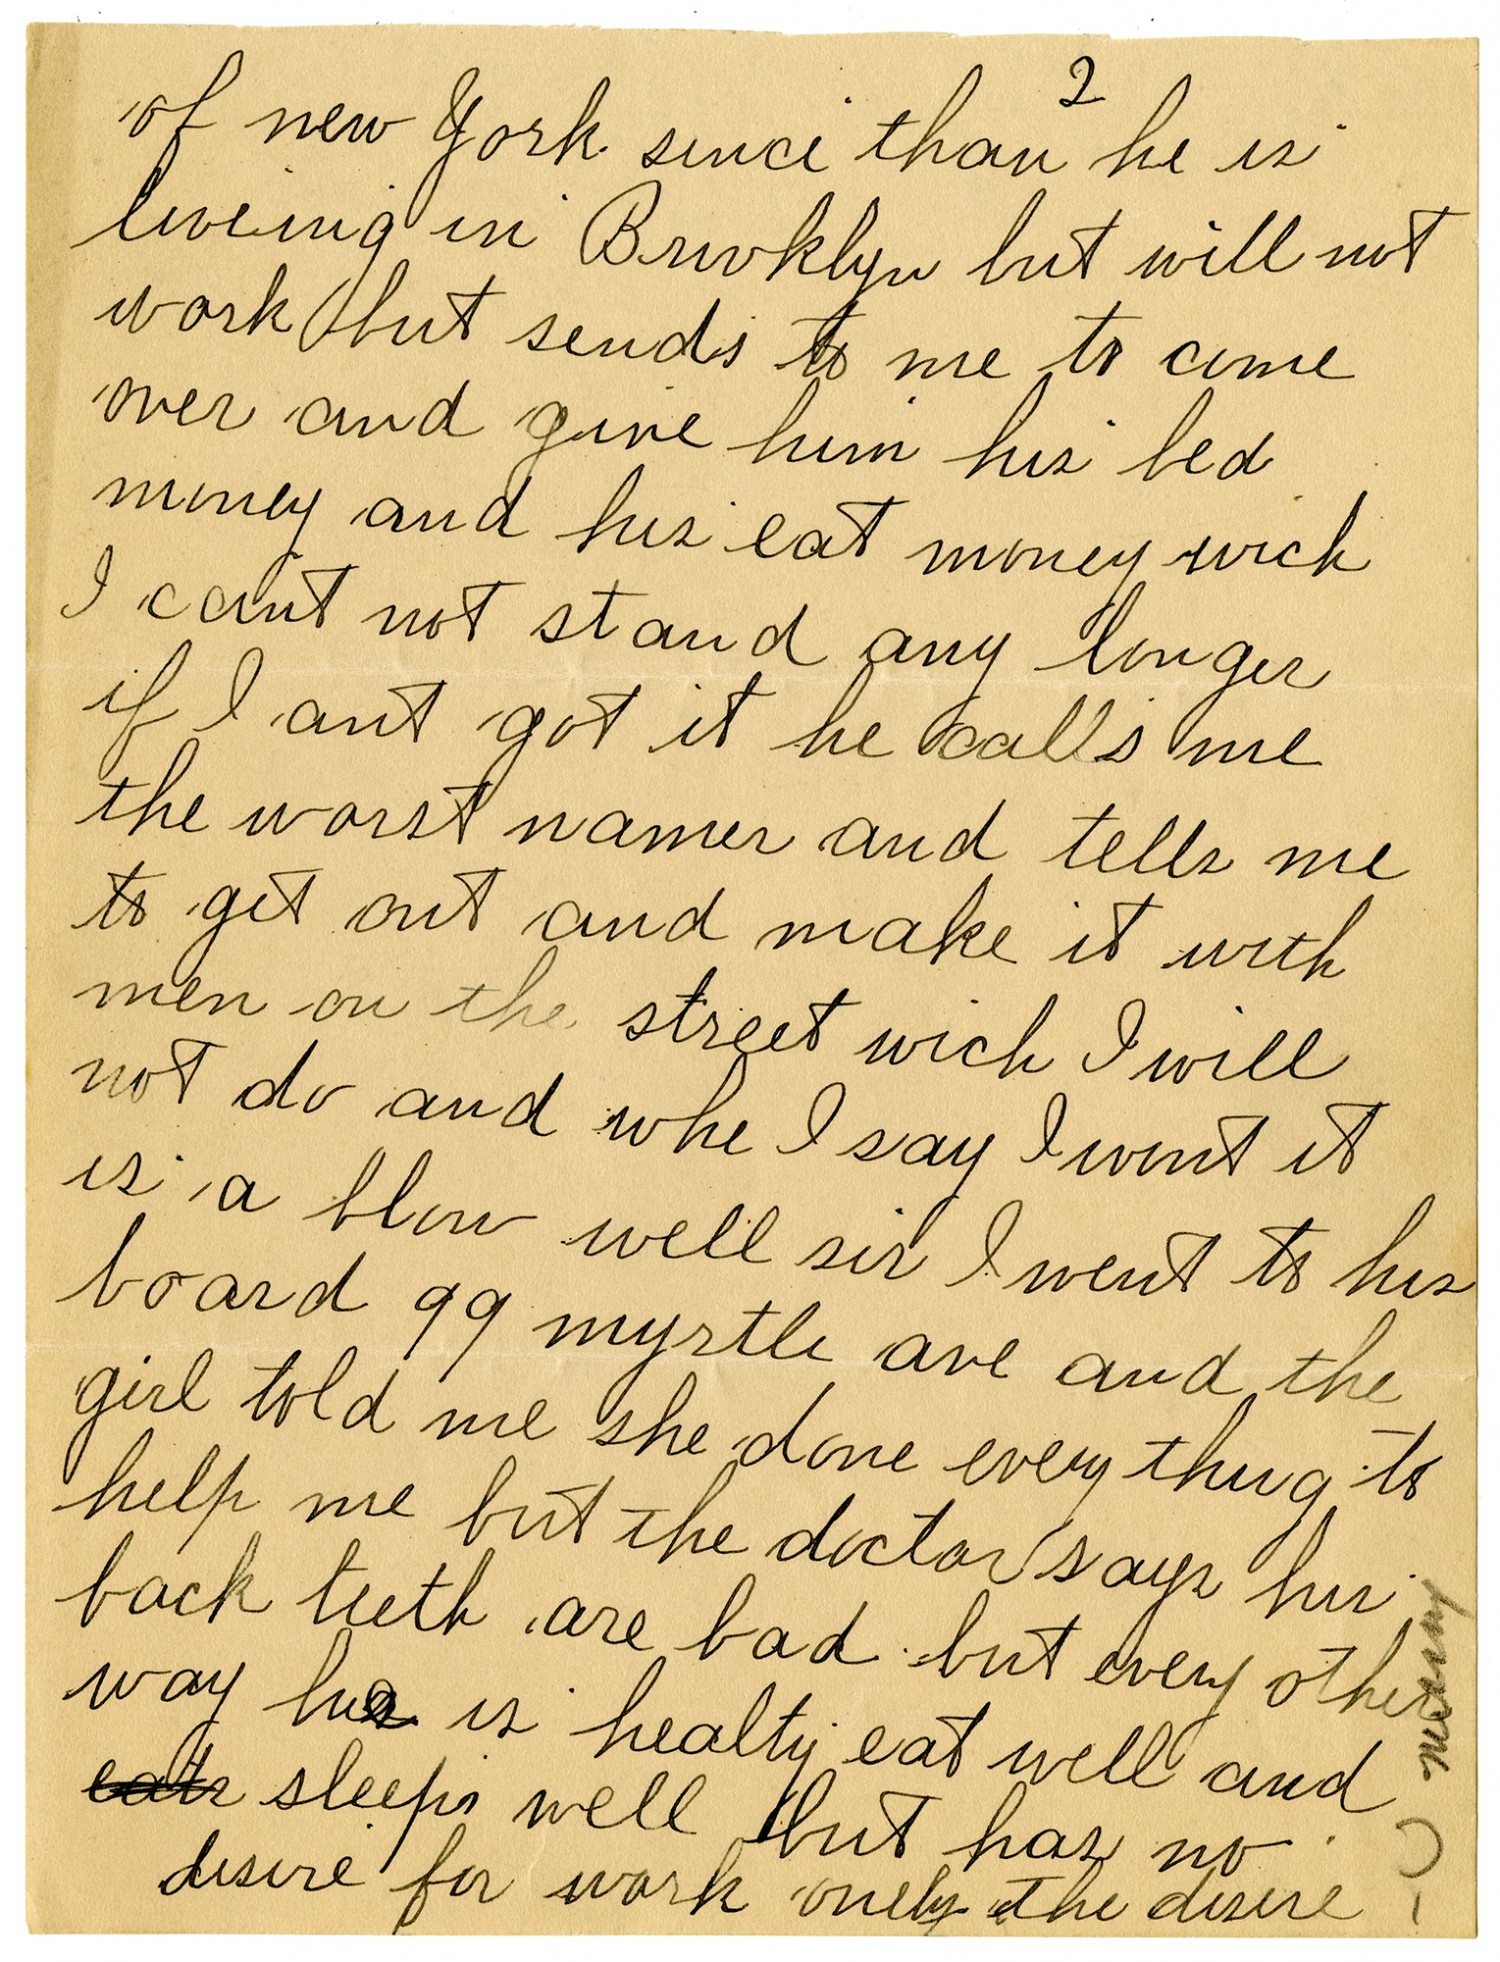 2
of new York since than he is
liveing in Brooklyn but will not
work but sends to me to come
over and give him his bed
money and his eat money wich
I cant not stand any longer
if I ant got it he calls me
the worst names and tells me
to get out and make it with
men on the street wich I will
not do and whe I say I wont it
is a blow well sir I went to his
board 99 myrtle ave and the
girl told me she done every thing to
help me but the doctor says his
back teeth are bad but every other
way he is healty eat well and
eats sleeps well but has no
desire for work onely the desire